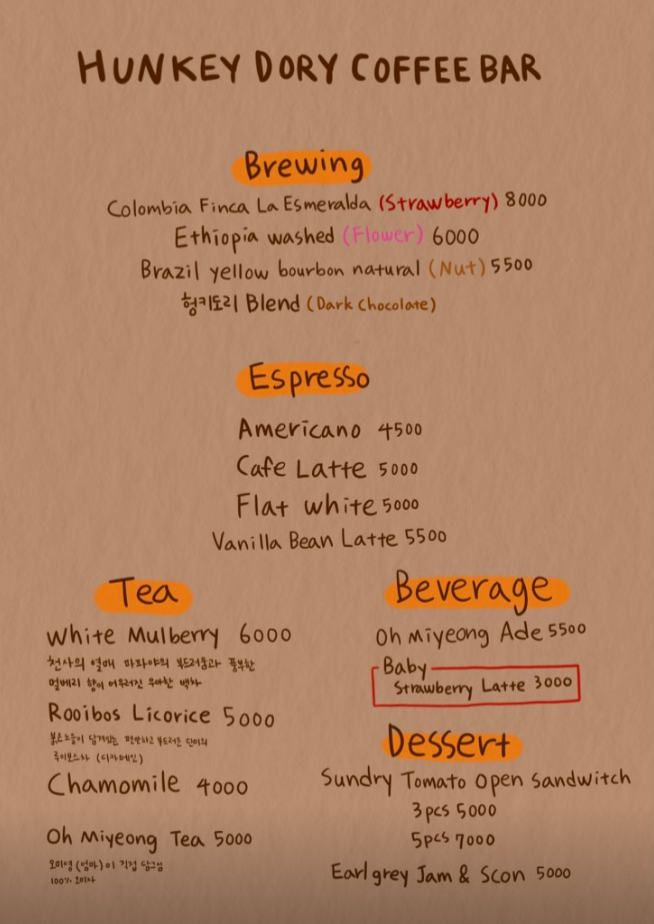 HUNKEY DORY COFFEE BAR
Brewing
Colombia Finca La Esmeralda (Strawberry) 8000
Ethiopia washed (Flower) 6000
Brazil yellow bourbon natural (Nut) 5500
헝키도리 Blend (Dark Chocolate)
Espresso
Americano 4500
Cafe Latte 5000
Flat white 5000
Vanilla Bean Latte 5500
Tea
White Mulberry 6000
천사의 열매 파파야의 부드러움과 풍부한
멀베리 향이 어우러진 우아한 백차
Rooibos Licorice 5000
붉은노을이 담겨있는 편안하고 부드러운 단미의
루이보스차 (디카페인)
Chamomile 4000
Oh Miyeong Tea 5000
오미영 (엄마)이 직접 담그신
100% 오미자
Beverage
Oh Miyeong Ade 5500
Baby
Strawberry Latte 3000
Dessert
Sundry Tomato Open Sandwitch
3pcs 5000
5pcs 7000
Earl grey Jam & Scon 5000